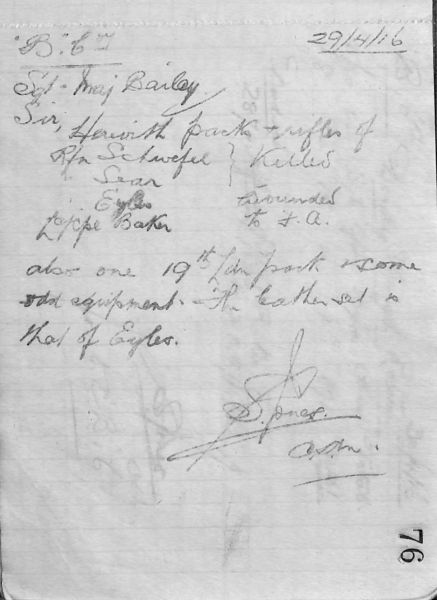 "B". Coy 29/4/16
Sgt-Maj Bailey.
Sir,
Herewith packs + rifles of
Rfn Schwefel } Killed
" Sear
" Eyles wounded
L/Cpl Baker to F.A.
also one 19th Ldn pack & some
odd equipment. The leather set is
that of Eyles.
S. Jones.
76